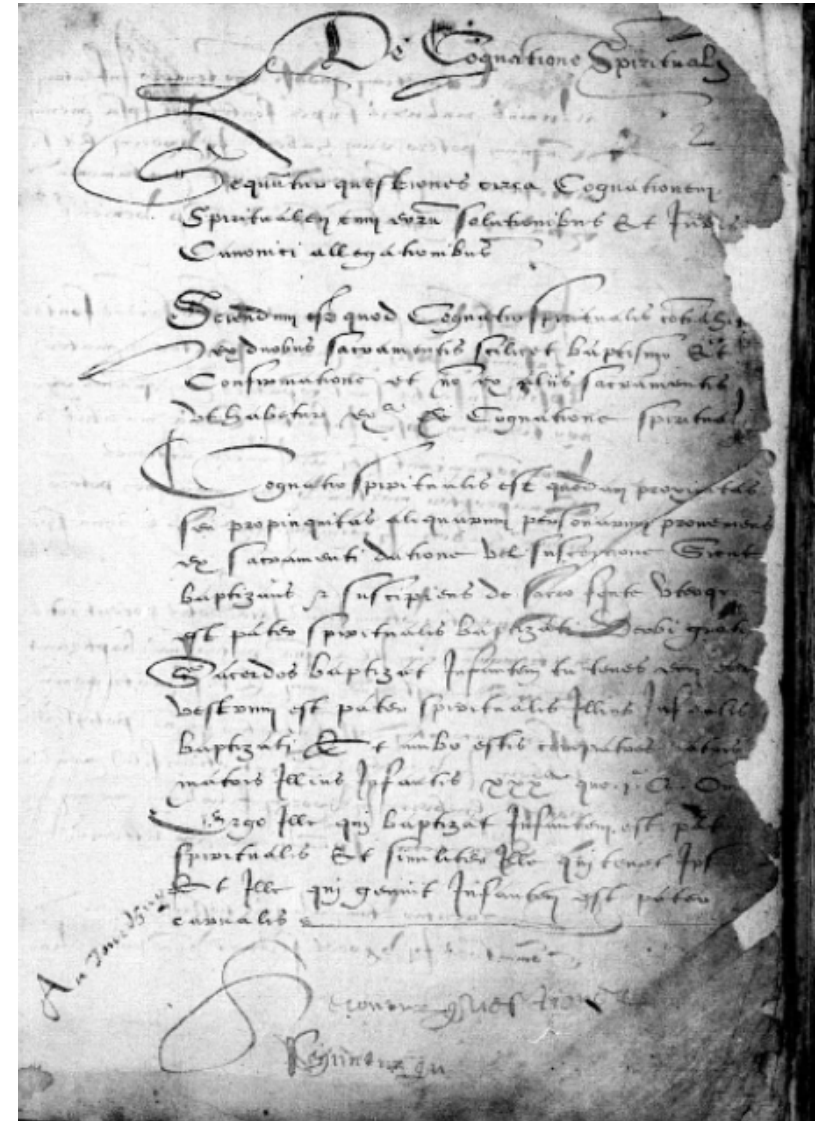 De Cognatione Spirituali
2
Sequūtur questiones circa Cognationem
Spiritualem cum eorū solutionibus Et Juris
Canonici allegationibus
Sciendum est quod Cognatio spiritualis cōtrahi
ex duobus sacramentis scilicet baptismo Et
Confirmatione et nō ex aliis sacramentis
ut habetur exª de Cognatione spirituali
Cognatio spiritualis est quedam proximitas
seu propinquitas aliquarum personarum proueniens
ex sacramenti datione vel susceptione Sicut
baptizans et suscipiens de sacro fonte vterque
est pater spiritualis baptizati verbi grati
Sacerdos baptizat Infantem tu tenes eum
vestrum est pater spiritualis Illius Infantis
baptizati Et ambo estis compatres
matris Illius Infantis xxx q. 1.
Ergo Ille qui baptizat Infantem est pat
spiritualis Et similiter Ille qui tenet Ips
Et Ille qui genuit Infantem est pater
carnalis